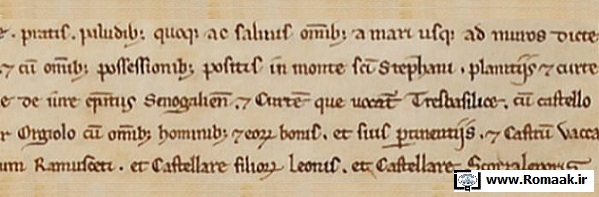 pratis. piludib; quoq; ac saliuis om̅ib; a mari usq; ad muros dicte
⁊ cū om̅ib; possessionib; positis in monte sc̅i stephani. planitijs ⁊ curte
e de iure ep̅atus Senogalien̅. ⁊ Curtē que uocat̅ Tresbasilice. cū castello
r Orgiolo cū om̅ib; hominib; ⁊ eoꝝ bonis. et suis ꝑtinentijs. ⁊ Castrū Vacca
um Ramusceti. et Castellare filioꝝ Leonis. et Castellare
www.Romaak.ir